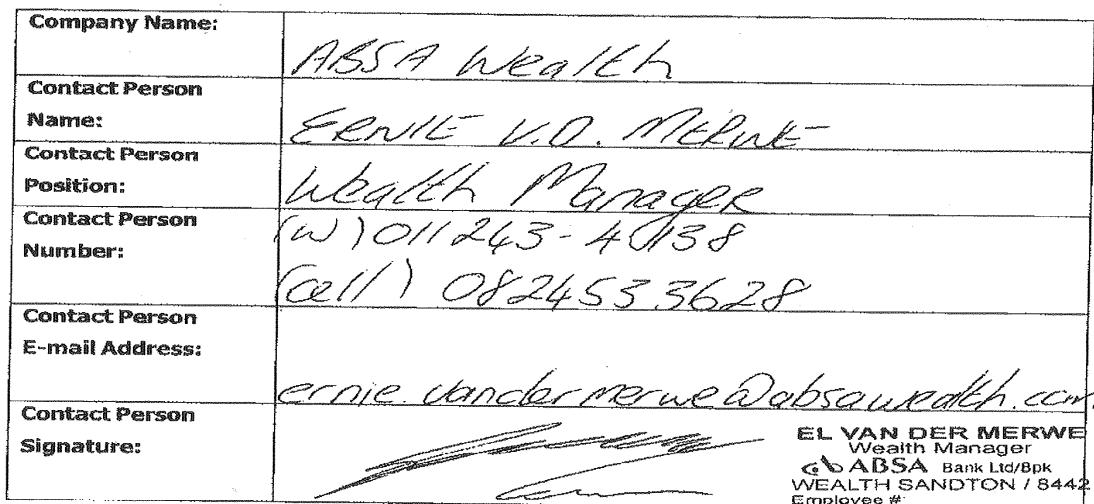 Company Name:
ABSA Wealth
Contact Person
Name:
ERNIE V.D. MERWE
Contact Person
Position:
Wealth Manager
Contact Person
Number:
(w) 011 243-
(cell) 0824533628
Contact Person
E-mail Address:
ernie.vandermerwe@absawealth.com
Contact Person
Signature:
EL VAN DER MERWE
Wealth Manager
ABSA Bank Ltd/Bpk
WEALTH SANDTON / 8442
Employee #: